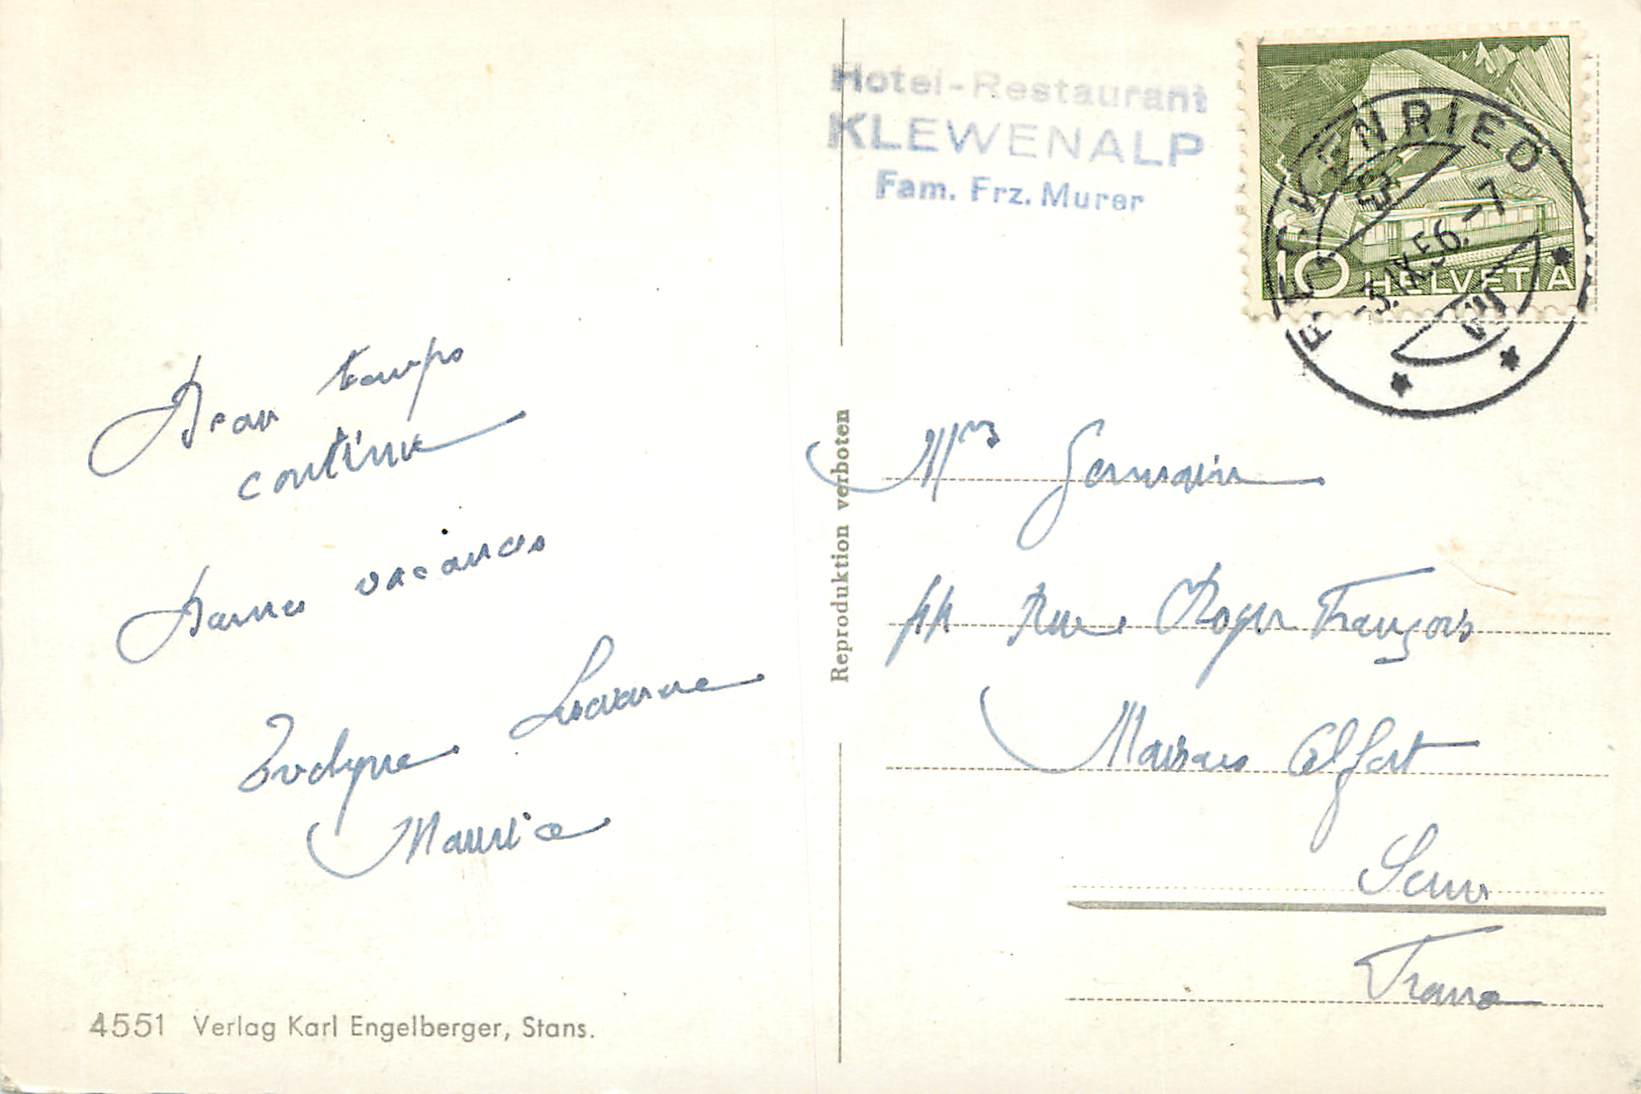 Beau temps
continue
Bonnes vacances
Evelyne Lucienne
Maurice
4551 Verlag Karl Engelberger, Stans.
Reproduktion verboten
Hotel-Restaurant
KLEWENALP
Fam. Frz. Murer
BECKENRIED
3.IX.56.-7
10 HELVETIA
Germain
44 Rue Roger François
Maisons Alfort
Seine
France